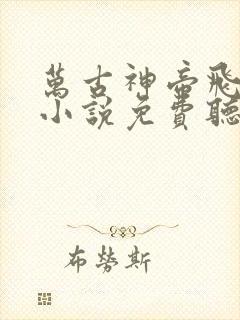 萬古神帝飛
小說免費聽
布勞斯